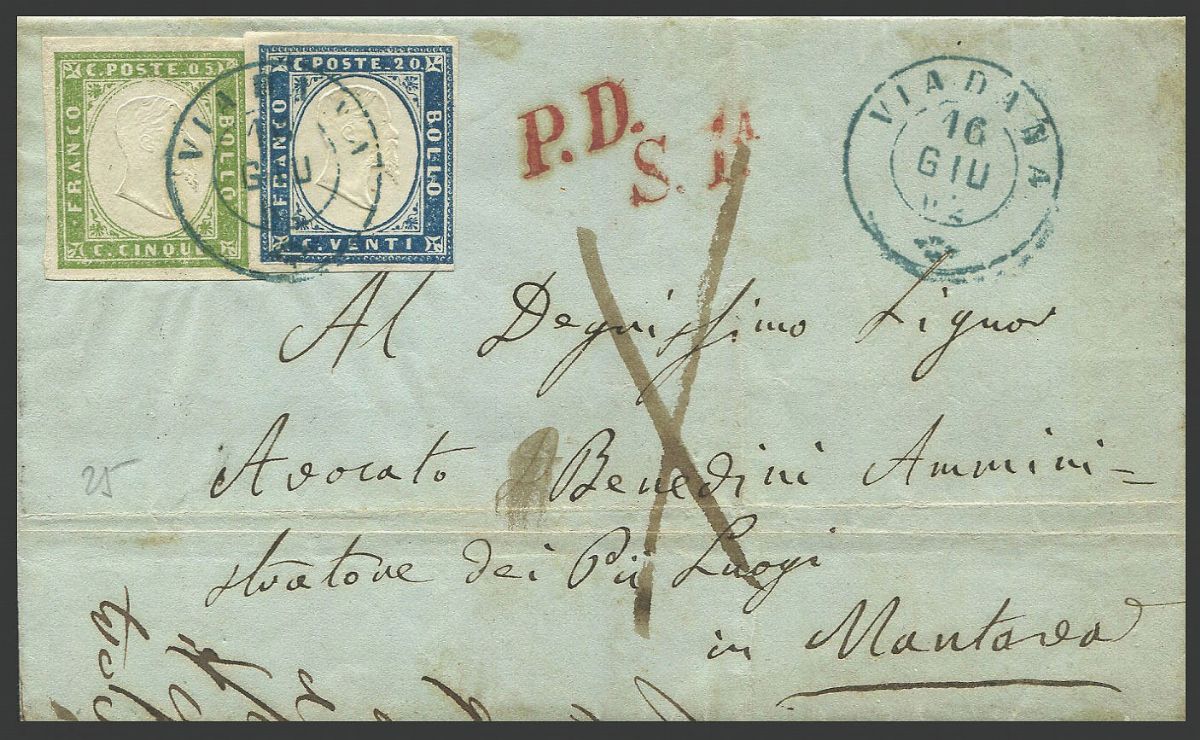 C. POSTE. 05
FRANCO
BOLLO
C. CINQUE
C. POSTE. 20
FRANCO
BOLLO
C. VENTI
P.D.
S. 1A
VIADANA
16
GIU
62
Al Degnissimo Signor
Avocato Benedini Ammini=
stratore dei Pii Luogi
in Mantova
25